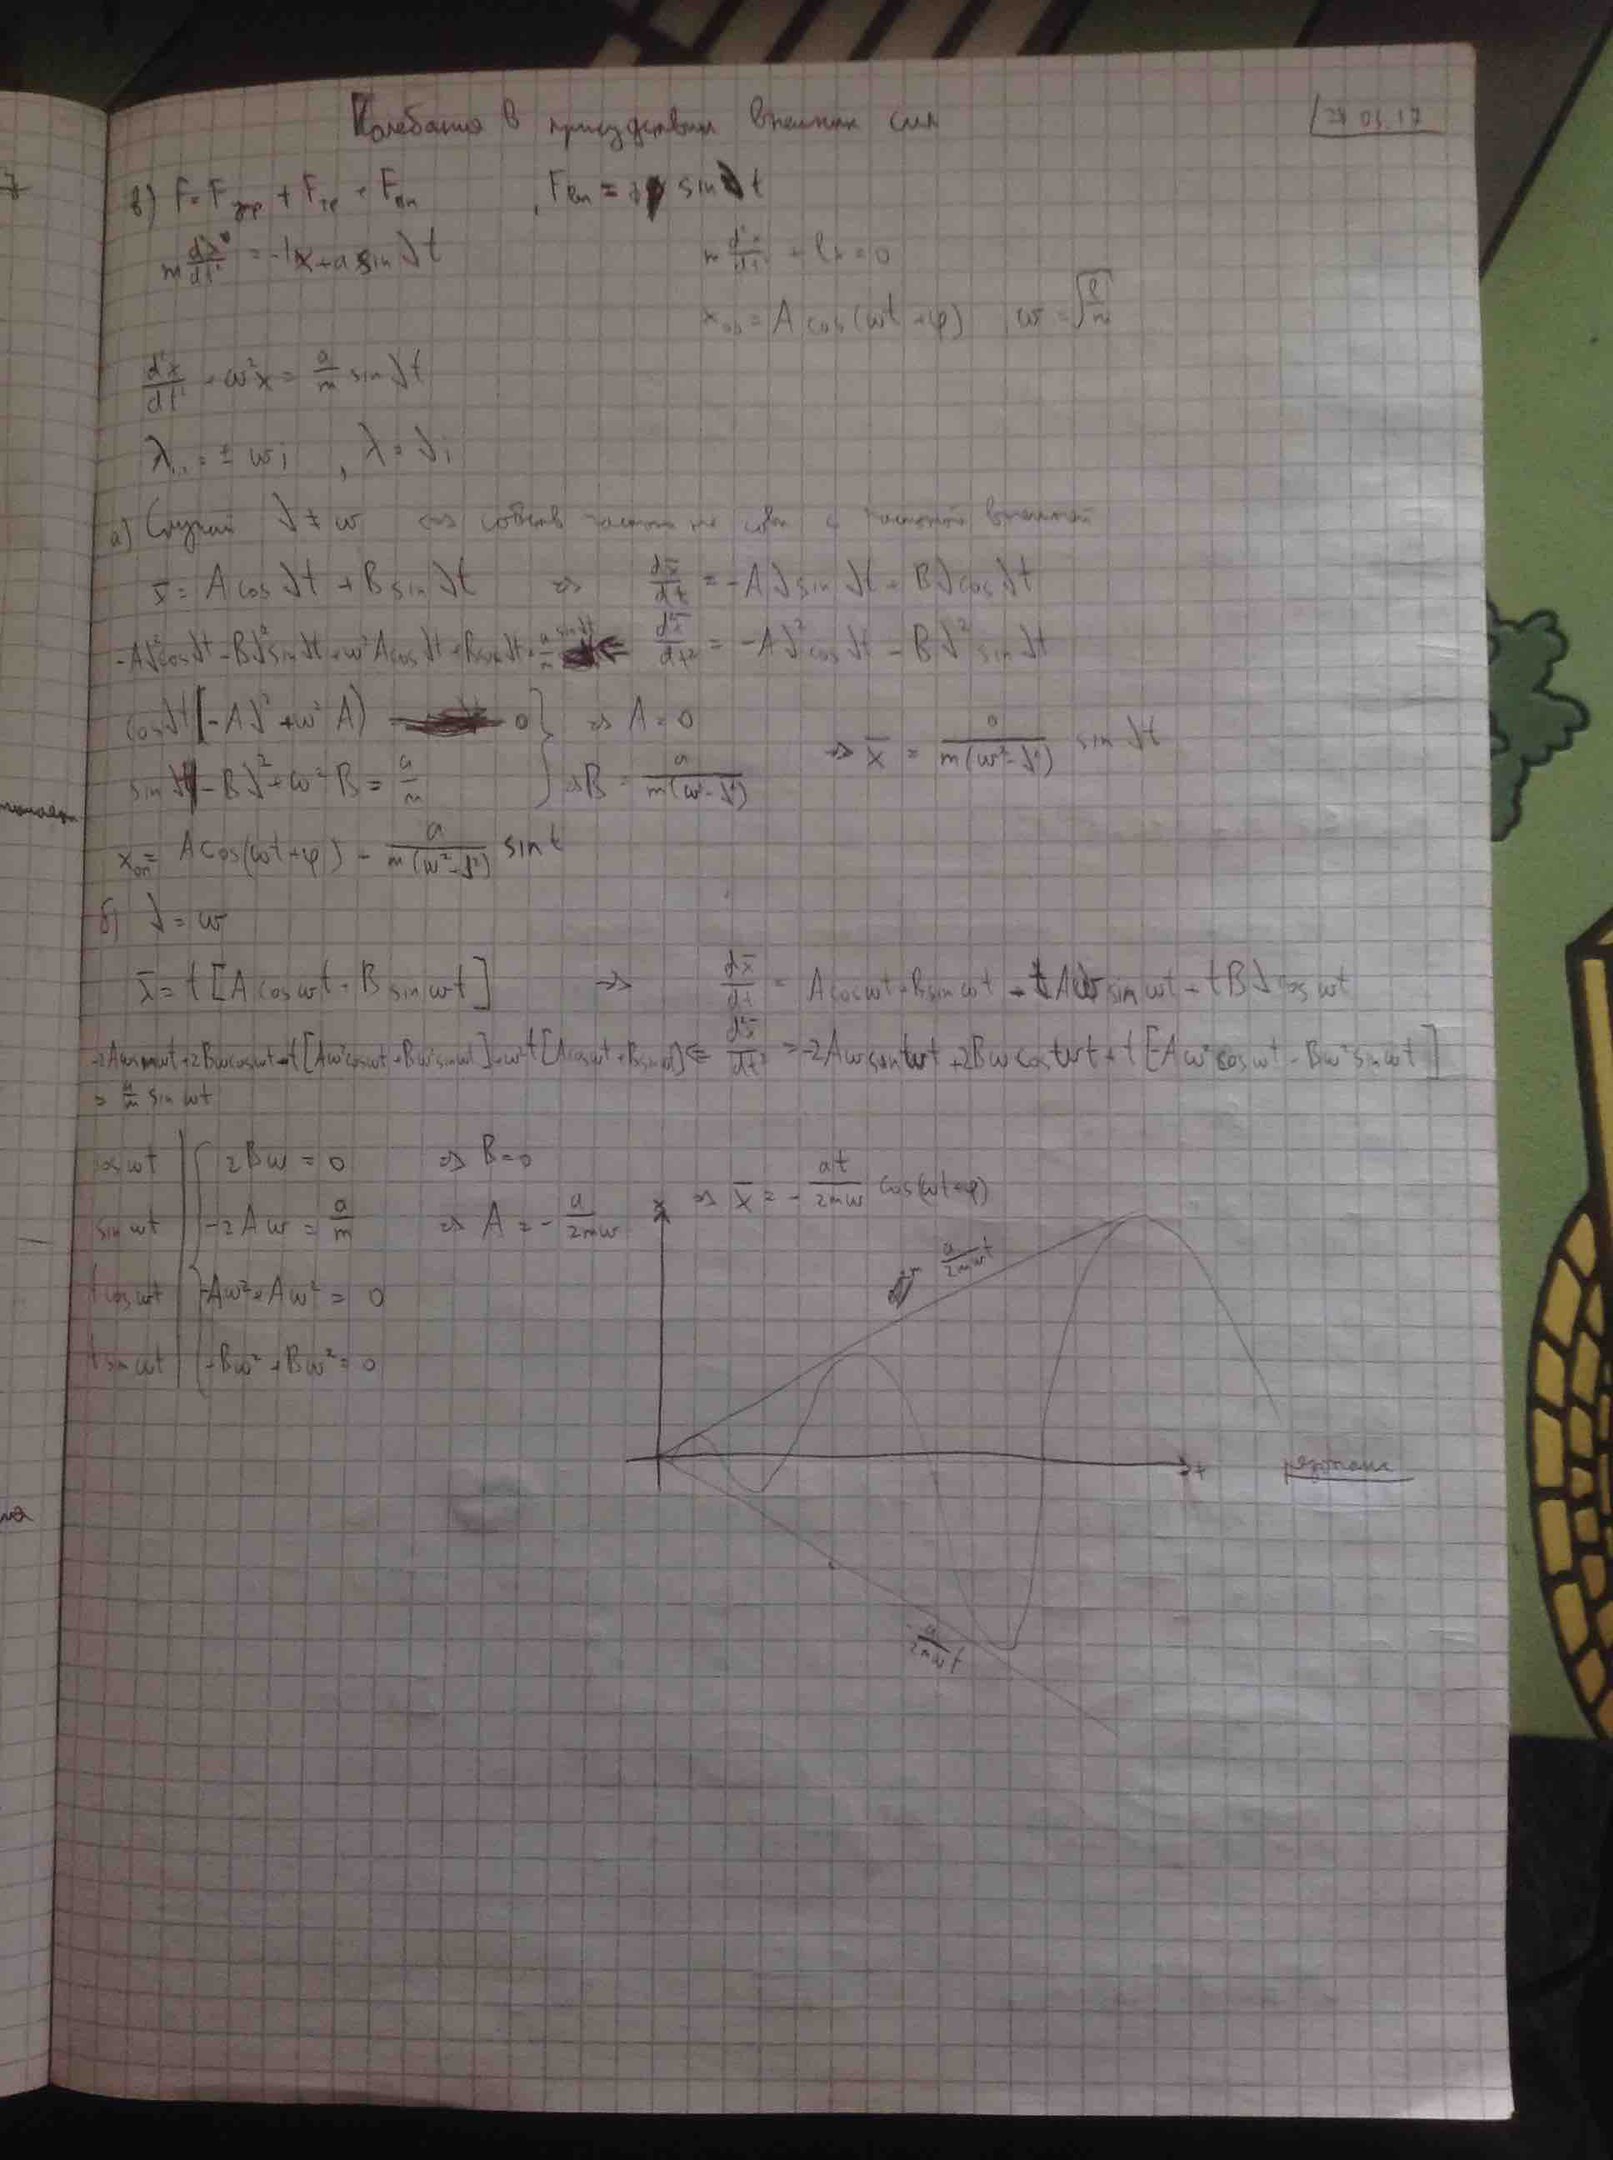 Колебания в присудствии внешних сил
24.03.17
в) F = F упр + F тр + F вн , F вн = a sin δt
m d²x/dt² = -kx + a sin δt
m d²x/dt² + kx = 0
x оо = A cos(ωt + φ) , ω = √(k/m)
d²x/dt² + ω²x = a/m sin δt
λ₁,₂ = ± ωi , λ = δi
а) Случай δ ≠ ω ⇔ собств частота не совп с частотой внешней
x̄ = A cos δt + B sin δt ⇒ dx̄/dt = -Aδ sin δt + Bδ cos δt
-Aδ² cos δt - Bδ² sin δt + ω² A cos δt + B sin δt = a/m sin δt ⇐ d²x̄/dt² = -Aδ² cos δt - Bδ² sin δt
cos δt | -Aδ² + ω² A) = 0 } ⇒ A = 0
sin δt | -Bδ² + ω² B = a/m } ⇒ B = a/m(ω² - δ²)
⇒ x̄ = a/m(ω² - δ²) sin δt
x он = A cos(ωt + φ) - a/m(ω² - δ²) sin t
б) δ = ω
x̄ = t [A cos ωt + B sin ωt] ⇒ dx̄/dt = A cos ωt + B sin ωt - tAω sin ωt + tBδ cos ωt
-2Aω sin ωt + 2Bω cos ωt - t [Aω² cos ωt + Bω² sin ωt] + ω² t [A cos ωt + B sin ωt] ⇐ d²x̄/dt² = -2Aω sin ωt + 2Bω cos ωt + t [-Aω² cos ωt - Bω² sin ωt]
= a/m sin ωt
cos ωt | 2Bω = 0 ⇒ B = 0
sin ωt | -2Aω = a/m ⇒ A = - a/2mω
⇒ x̄ = - at/2mω cos(ωt + φ)
t cos ωt | -Aω² + Aω² = 0
t sin ωt | -Bω² + Bω² = 0
x
a/2mω t
t
резонанс
- a/2mω t